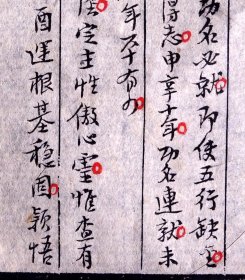 功名必就即使五行缺全
得志申辛十年功名連就未
年五十有外
法定主性傲心靈惟查有
酉運根基穩固穎悟